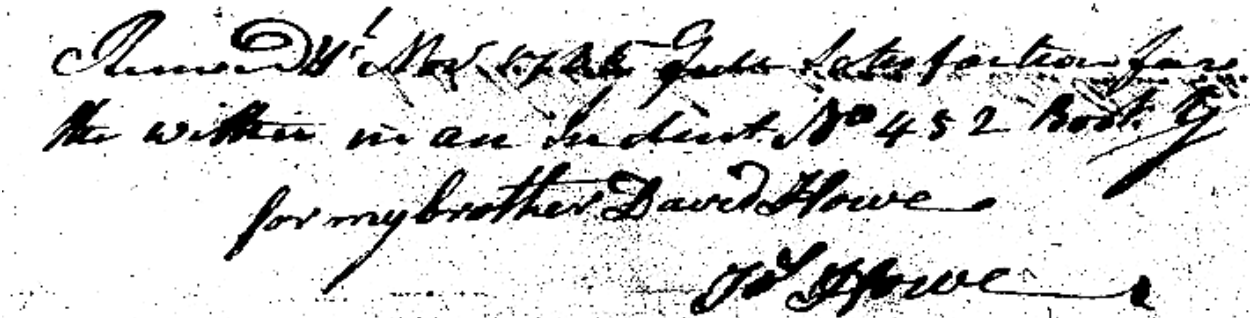 Received 4t Nov 1785 full Satisfaction for
the within in an Indent No 452 Book Y
for my brother David Howe
Howe